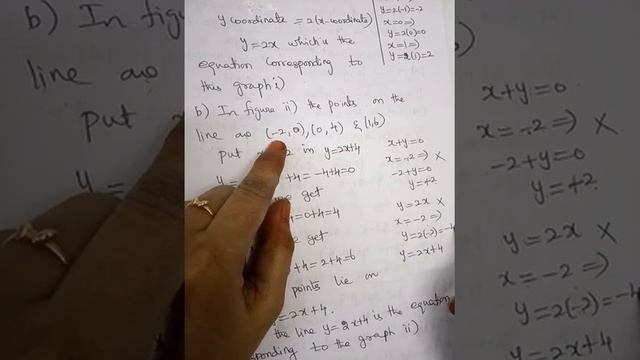 y coordinate = 2(x-coordinate)
y=2x which is the
equation corresponding to
this graph i)
y=2(-1)=-2
x=0⇒
y=2(0)=0
x=1⇒
y=2(1)=2
b) In figure ii) the points on the
line are (-2,0), (0,4) & (1,6)
put 2 in y=2x+4
+4=-4+4=0
get
4=0+4=4
get
+4=2+4=6
points lie on
y=2x+4.
the line y=2x+4 is the equation
to the graph ii)
x+y=0
x=-2⇒ X
-2+y=0
y=+2
y=2x X
x=-2⇒
y=2(-2)=-4
y=2x+4
b) In
line are
put
y=
x+y=0
x=-2⇒ X
-2+y=0
y=+2
y=2x X
x=-2⇒
y=2(-2)=-4
y=2x+4